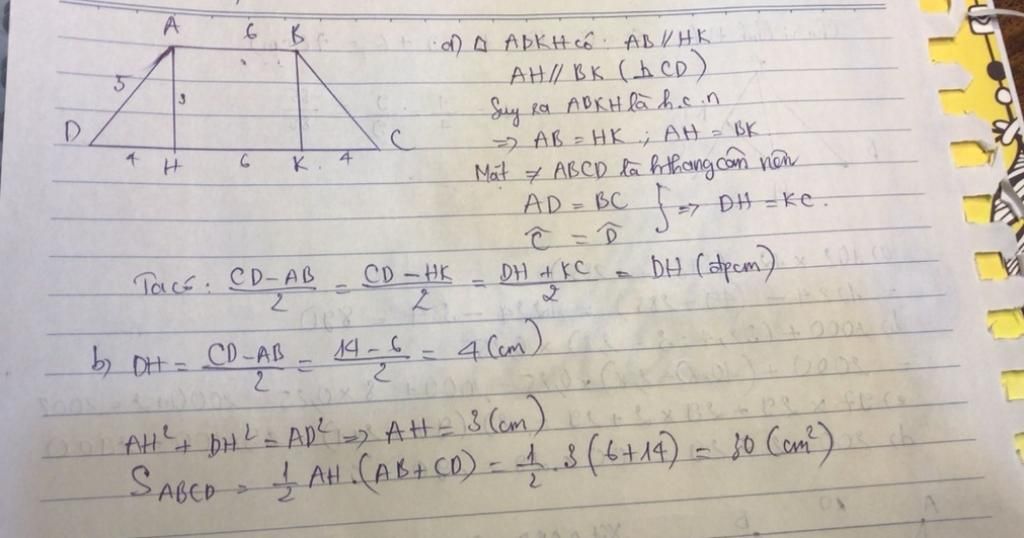 A 6 B
5 3
D 4 H 6 K. 4 C
a) Δ ABKH có: AB // HK
AH // BK (⊥ CD)
Suy ra ABKH là h.c.n
=> AB = HK ; AH = BK
Mặt ≠ ABCD là hthang cân nên
AD = BC } => DH = KC.
Ĉ = D̂
Ta có: (CD - AB)/2 = (CD - HK)/2 = (DH + KC)/2 = DH (đpcm)
b) DH = (CD - AB)/2 = (14 - 6)/2 = 4 (cm)
AH² + DH² = AD² => AH = 3 (cm)
S ABCD = 1/2 AH.(AB + CD) = 1/2 . 3 (6 + 14) = 30 (cm²)